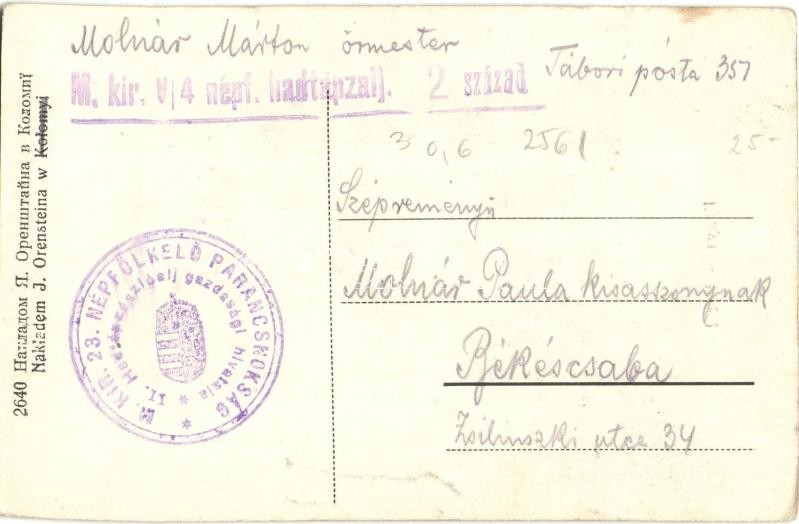 Molnár Márton őrmester
Tábori pósta 357
M. kir. V/4 népf. hadtápzalj. 2 század
3 0,6 2561 25-
Szépreményű
Molnár Paula kisasszonynak
Békéscsaba
Zsilinszki utca 34
M. KIR. 23. NÉPFÖLKELŐ PARANCSNOKSÁG
II. gazdasági hivatala
2640 Накладом Я. Оренштайна в Коломиї
Nakładem J. Orensteina w Kołomyi